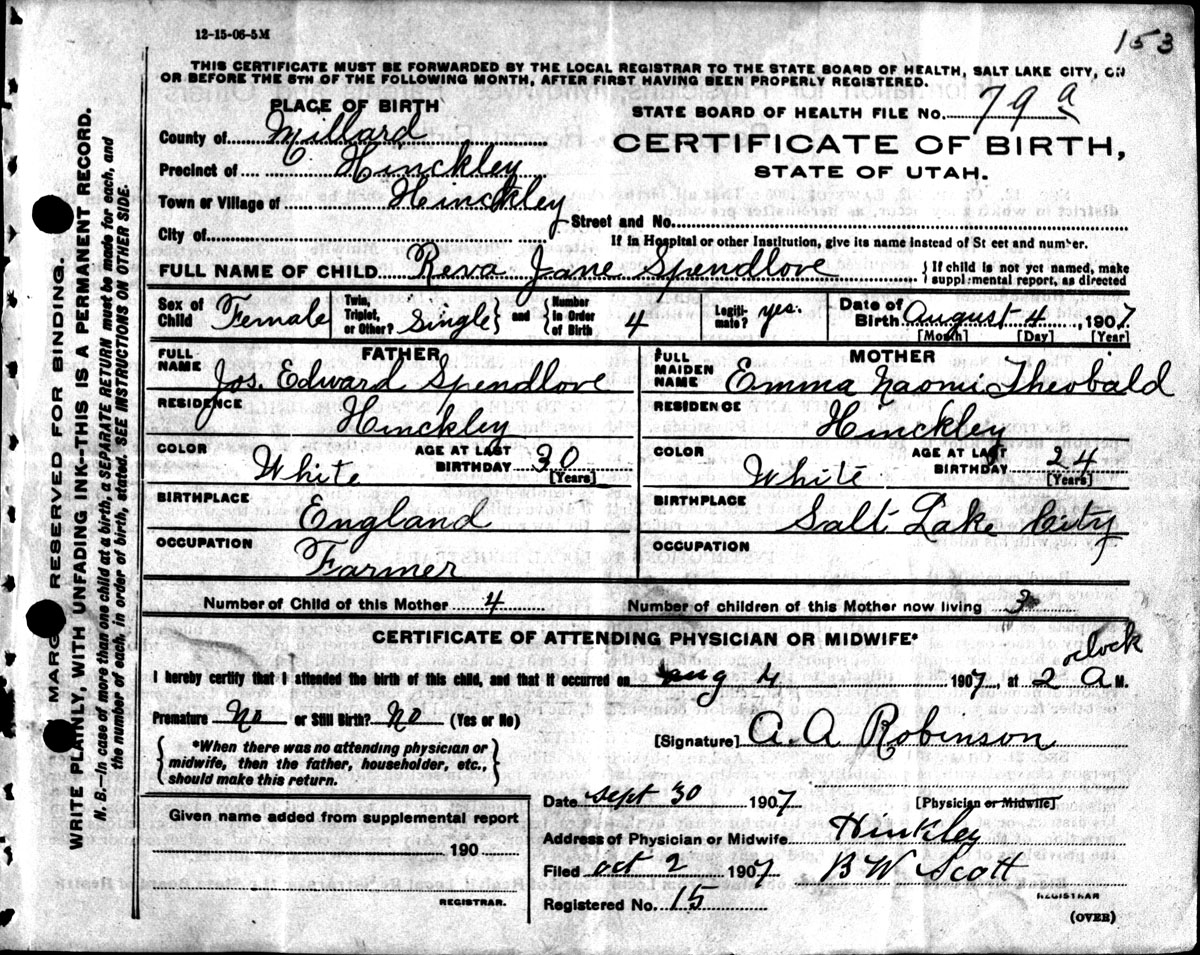 12-15-06-5M
153
THIS CERTIFICATE MUST BE FORWARDED BY THE LOCAL REGISTRAR TO THE STATE BOARD OF HEALTH, SALT LAKE CITY, ON
OR BEFORE THE 5TH OF THE FOLLOWING MONTH, AFTER FIRST HAVING BEEN PROPERLY REGISTERED.
PLACE OF BIRTH
STATE BOARD OF HEALTH FILE No. 79 a
County of Millard
CERTIFICATE OF BIRTH,
Precinct of Hinckley
STATE OF UTAH.
Town or Village of Hinckley
Street and No.
City of
If in Hospital or other Institution, give its name instead of St eet and number.
FULL NAME OF CHILD Reva Jane Spendlove
{ If child is not yet named, make
supplemental report, as directed
Sex of Child Female
Twin, Triplet, or Other? Single } and { Number in Order of Birth 4
Legiti- mate? yes.
Date of Birth August 4, 1907
[Month] [Day] [Year]
FATHER
MOTHER
FULL NAME Jos. Edward Spendlove
FULL MAIDEN NAME Emma Naomi Theobald
RESIDENCE Hinckley
RESIDENCE Hinckley
COLOR White
AGE AT LAST BIRTHDAY 30
[Years]
COLOR White
AGE AT LAST BIRTHDAY 24
[Years]
BIRTHPLACE England
BIRTHPLACE Salt Lake City
OCCUPATION Farmer
OCCUPATION
Number of Child of this Mother 4
Number of children of this Mother now living 3
CERTIFICATE OF ATTENDING PHYSICIAN OR MIDWIFE*
I hereby certify that I attended the birth of this child, and that it occurred on aug 4 1907, at 2 oclock A M.
Premature No or Still Birth? No (Yes or No)
[Signature] A. A Robinson
{ *When there was no attending physician or
midwife, then the father, householder, etc.,
should make this return. }
Date Sept 30 1907
[Physician or Midwife]
Given name added from supplemental report
190
REGISTRAR.
Address of Physician or Midwife Hinkley
Filed Oct 2 1907 B W Scott
REGISTRAR
Registered No. 15
(OVER)
MARG RESERVED FOR BINDING.
WRITE PLAINLY, WITH UNFADING INK--THIS IS A PERMANENT RECORD.
N. B.--In case of more than one child at a birth, a SEPARATE RETURN must be made for each, and
the number of each, in order of birth, stated. SEE INSTRUCTIONS ON OTHER SIDE.